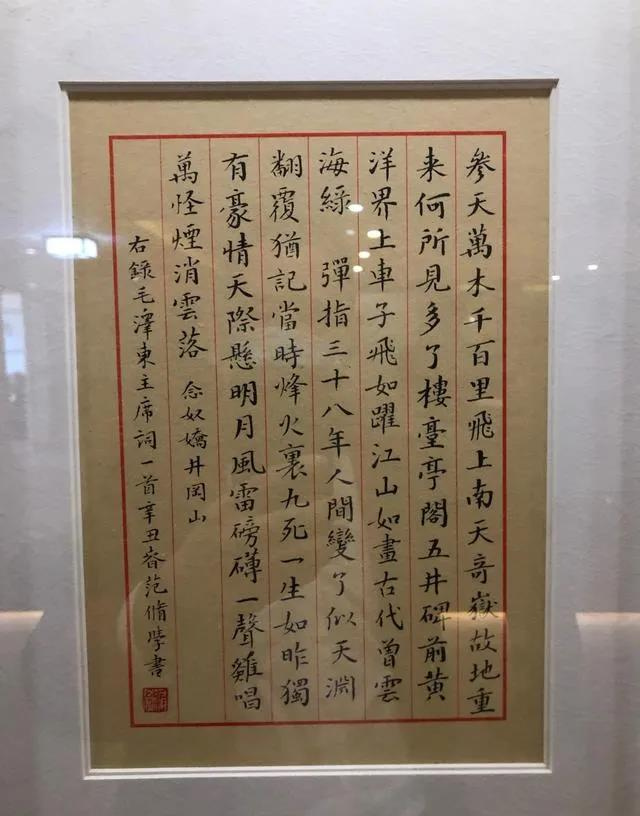 參天萬木千百里飛上南天奇嶽故地重
来何所見多了樓臺亭閣五井碑前黄
洋界上車子飛如躍江山如畫古代曾雲
海綠 彈指三十八年人間變了似天淵
翻覆猶記當時烽火裏九死一生如昨獨
有豪情天際懸明月風雷磅礴一聲雞唱
萬怪煙消雲落 念奴嬌井岡山
右錄毛澤東主席詞一首辛丑春范脩學書